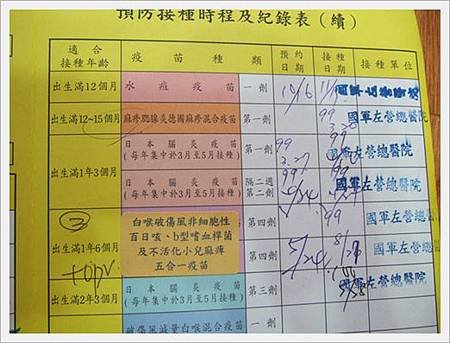 預防接種時程及紀錄表(續)
適合接種年齡 疫苗種類 預約日期 接種日期 接種單位
出生滿12個月 水痘疫苗 一劑 10/6
出生滿12~15個月 麻疹腮腺炎德國麻疹混合疫苗 第一劑 99 國軍左營總醫院
出生滿1年3個月 日本腦炎疫苗
(每年集中於3月至5月接種) 第一劑 99 國軍左營總醫院
日本腦炎疫苗
(每年集中於3月至5月接種) 隔二週
第二劑 國軍左營總醫院
出生滿1年6個月 白喉破傷風非細胞性
百日咳、b型嗜血桿菌
及不活化小兒麻痺
五合一疫苗 第四劑 99 國軍左營總醫院
第四劑 5/24
出生滿2年3個月 日本腦炎疫苗
(每年集中於3月至5月接種) 第三劑 國軍左營總醫院
破傷風減量白喉混合疫苗 一劑